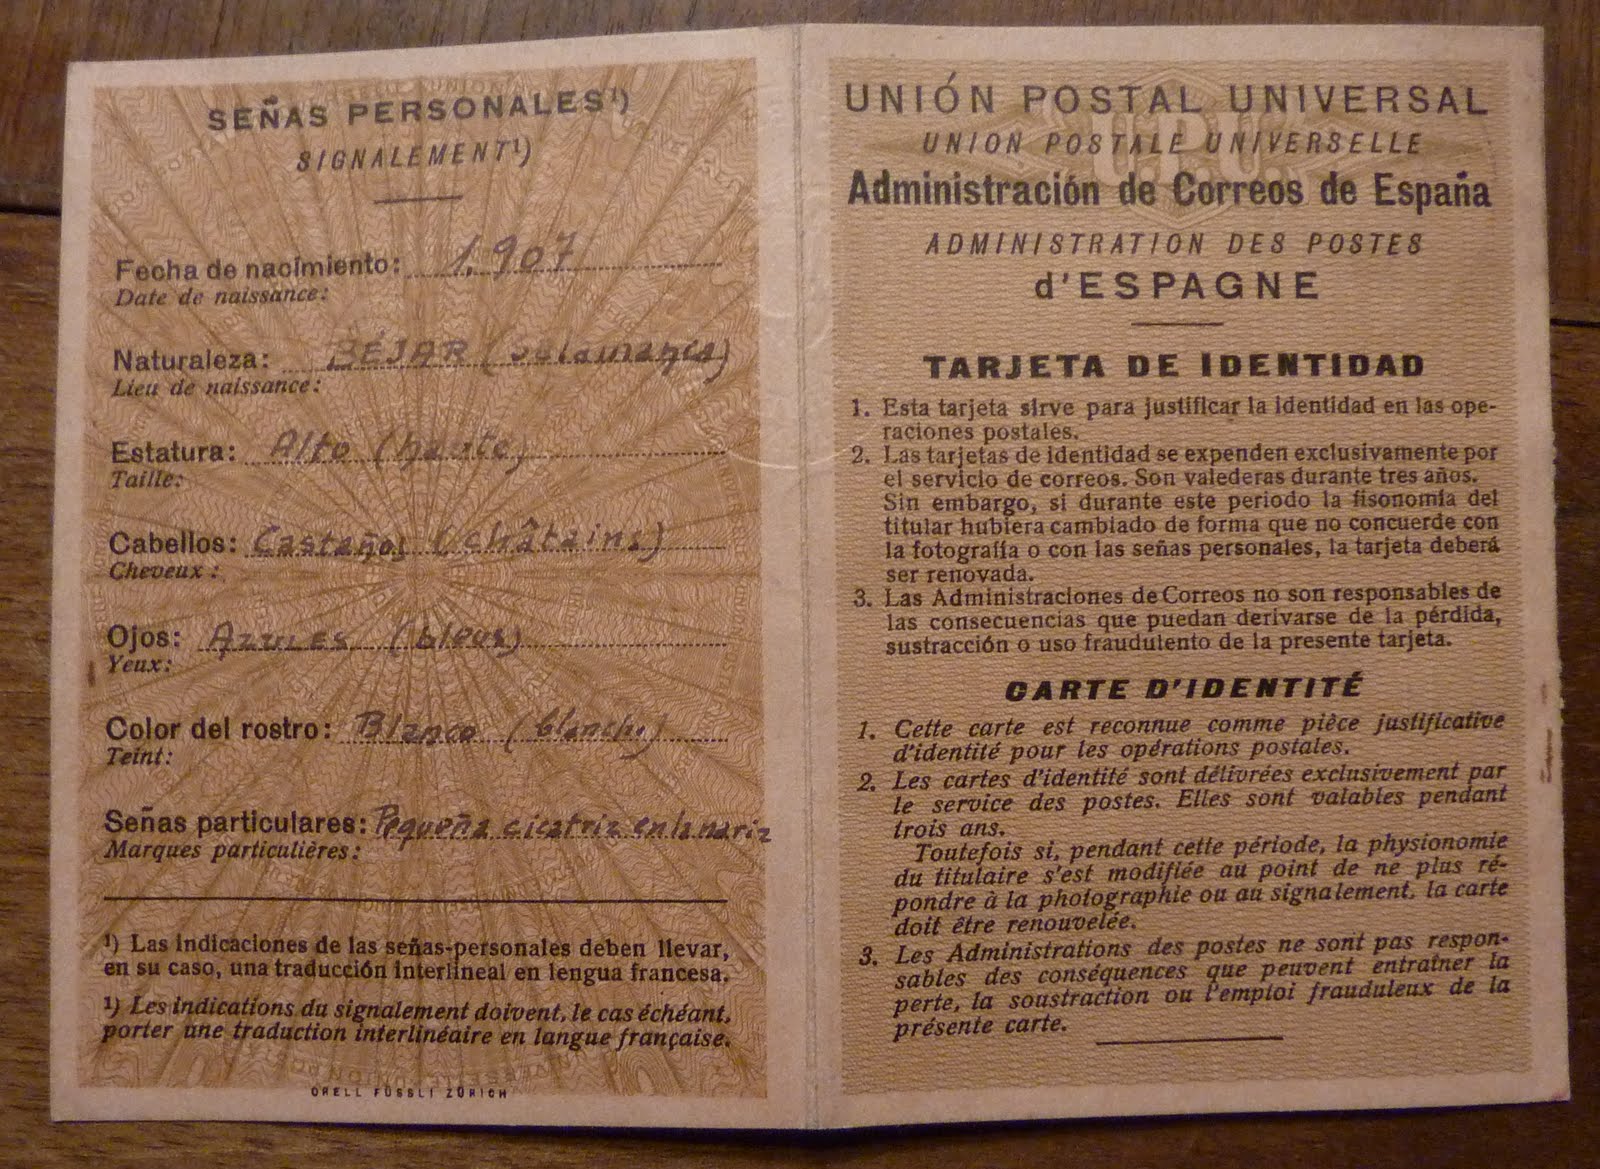 SEÑAS PERSONALES¹)
SIGNALEMENT¹)
Fecha de nacimiento: 1.907
Date de naissance:
Naturaleza: BÉJAR (Salamanca)
Lieu de naissance:
Estatura: Alto (haute)
Taille:
Cabellos: Castaños (châtains)
Cheveux:
Ojos: AZULES (bleus)
Yeux:
Color del rostro: Blanco (blanche)
Teint:
Señas particulares: Pequeña cicatriz en la nariz
Marques particulières:
¹) Las indicaciones de las señas-personales deben llevar,
en su caso, una traducción interlineal en lengua francesa.
¹) Les indications du signalement doivent, le cas échéant,
porter une traduction interlinéaire en langue française.
ORELL FÜSSLI ZÜRICH
UNIÓN POSTAL UNIVERSAL
UNION POSTALE UNIVERSELLE
Administración de Correos de España
ADMINISTRATION DES POSTES
d'ESPAGNE
TARJETA DE IDENTIDAD
1. Esta tarjeta sirve para justificar la identidad en las ope-
raciones postales.
2. Las tarjetas de identidad se expenden exclusivamente por
el servicio de correos. Son valederas durante tres años.
Sin embargo, si durante este periodo la fisonomía del
titular hubiera cambiado de forma que no concuerde con
la fotografía o con las señas personales, la tarjeta deberá
ser renovada.
3. Las Administraciones de Correos no son responsables de
las consecuencias que puedan derivarse de la pérdida,
sustracción o uso fraudulento de la presente tarjeta.
CARTE D'IDENTITÉ
1. Cette carte est reconnue comme pièce justificative
d'identité pour les opérations postales.
2. Les cartes d'identité sont délivrées exclusivement par
le service des postes. Elles sont valables pendant
trois ans.
Toutefois si, pendant cette période, la physionomie
du titulaire s'est modifiée au point de ne plus ré-
pondre à la photographie ou au signalement, la carte
doit être renouvelée.
3. Les Administrations des postes ne sont pas respon-
sables des conséquences que peuvent entraîner la
perte, la soustraction ou l'emploi frauduleux de la
présente carte.